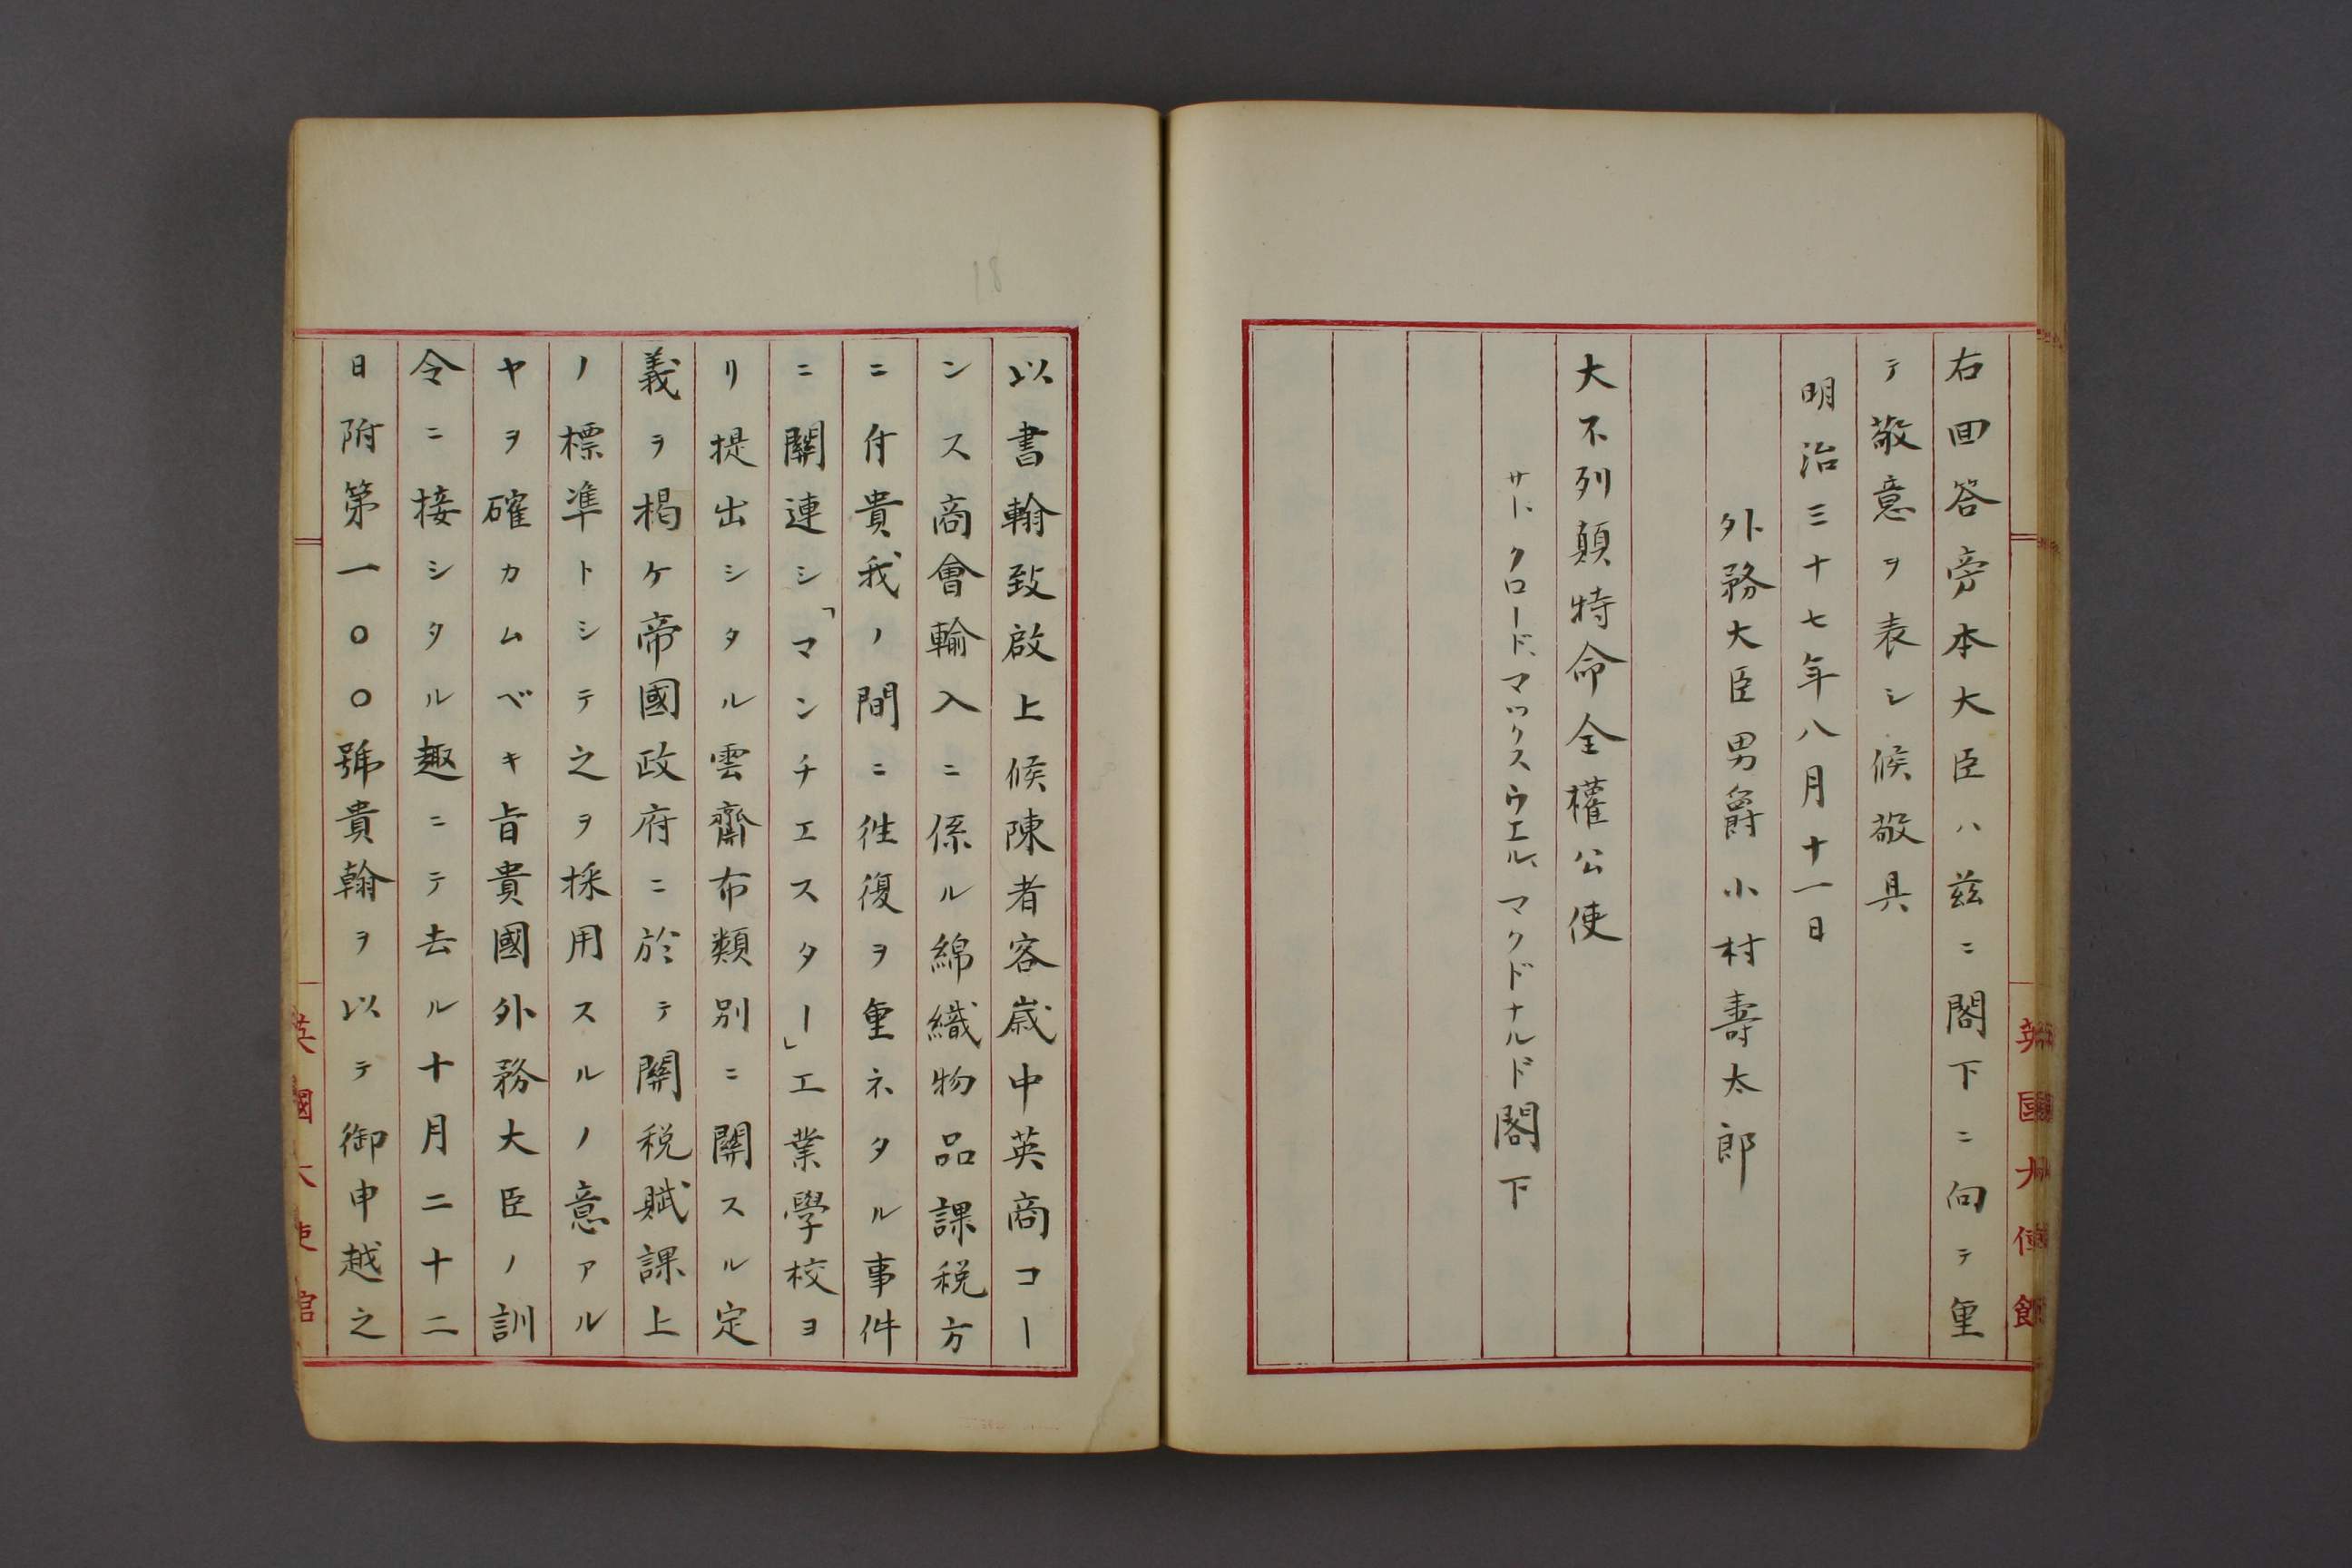 右回答旁本大臣ハ茲ニ閣下ニ向テ重
テ敬意ヲ表シ候敬具
明治三十七年八月十一日
外務大臣男爵小村壽太郎
大不列顛特命全權公使
サー、クロード、マックスウエル、マクドナルド閣下
英國大使館
18
以書翰致啟上候陳者客歳中英商コー
ンス商會輸入ニ係ル綿織物品課税方
ニ付貴我ノ間ニ徃復ヲ重ネタル事件
ニ關連シ「マンチエスター」工業學校ヨ
リ提出シタル雲齋布類別ニ關スル定
義ヲ掲ケ帝國政府ニ於テ關税賦課上
ノ標準トシテ之ヲ採用スルノ意アル
ヤヲ確カムベキ旨貴國外務大臣ノ訓
令ニ接シタル趣ニテ去ル十月二十二
日附第一〇〇號貴翰ヲ以テ御申越之
英國大使館